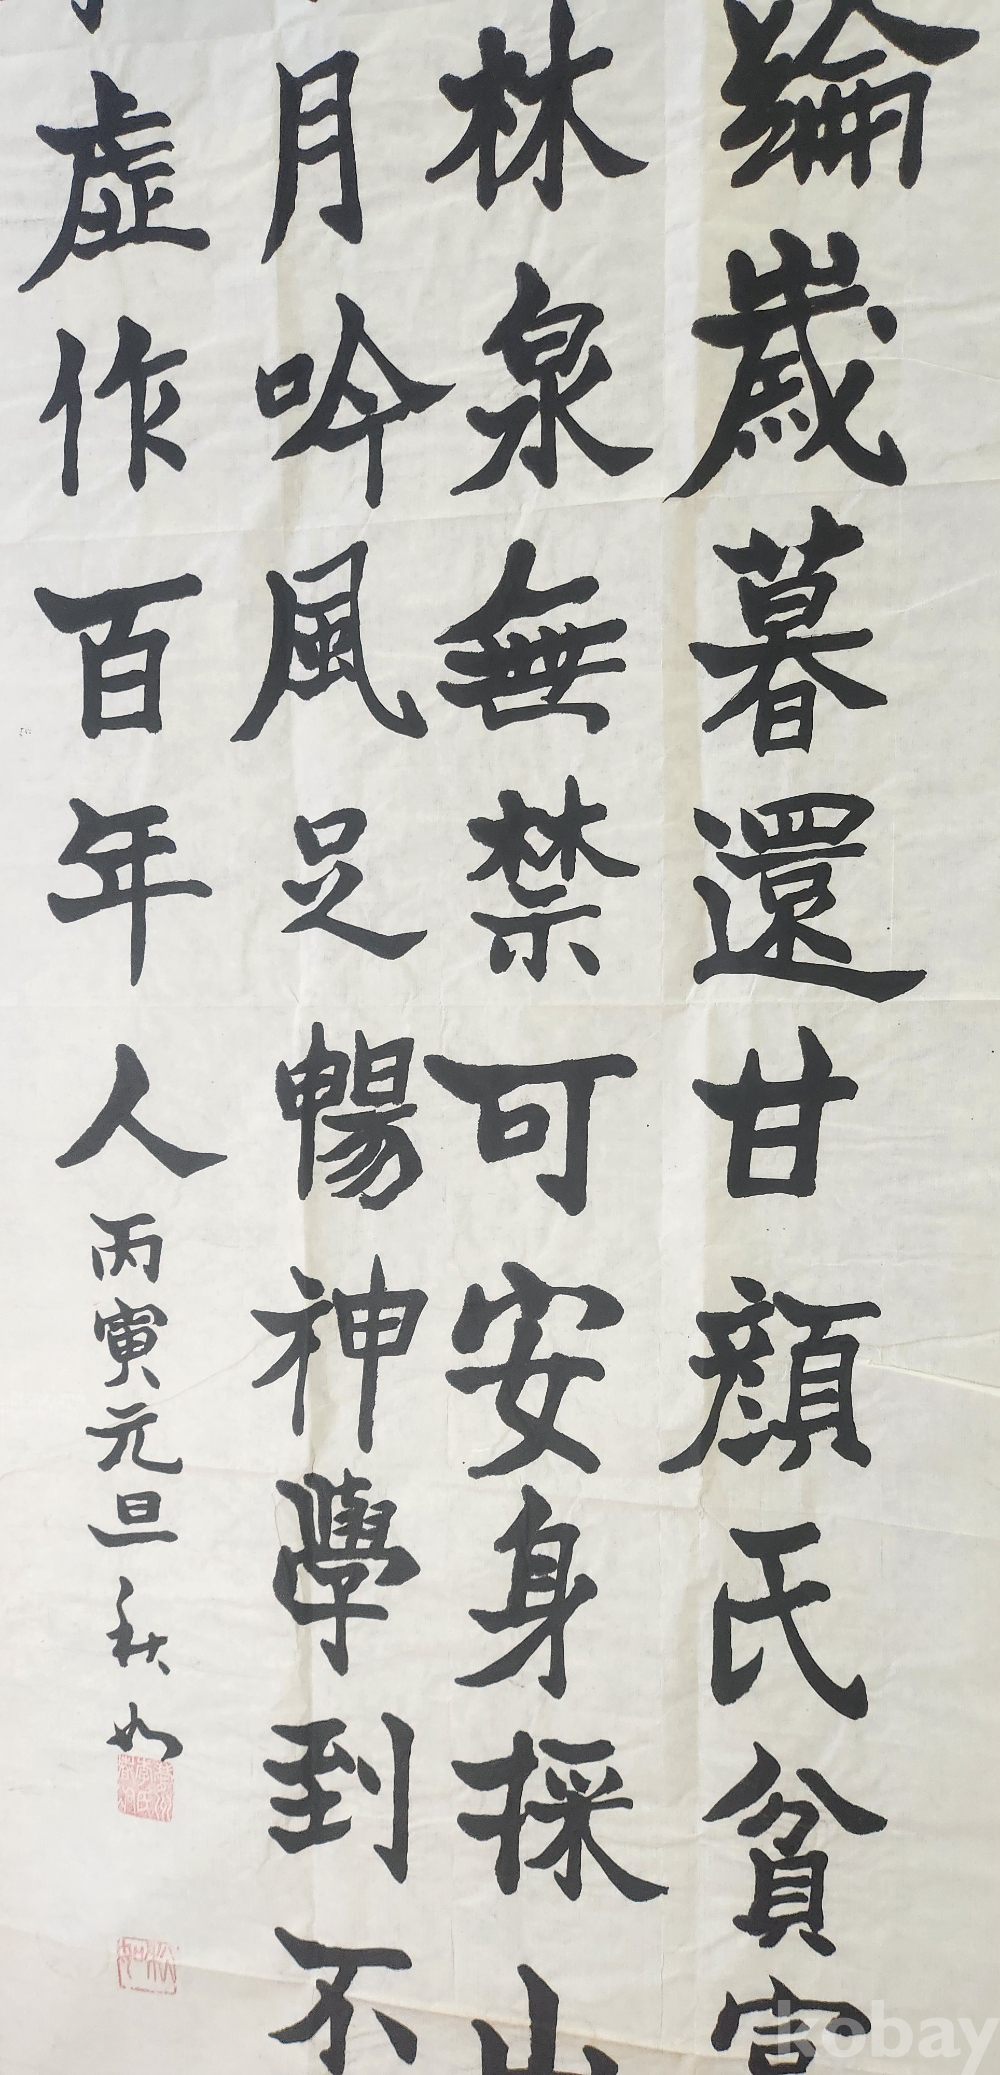 綸歲暮還甘顔氏貧富
林泉無禁可安身採山
月吟風足暢神學到不
虛作百年人
丙寅元旦 秋如
kobay